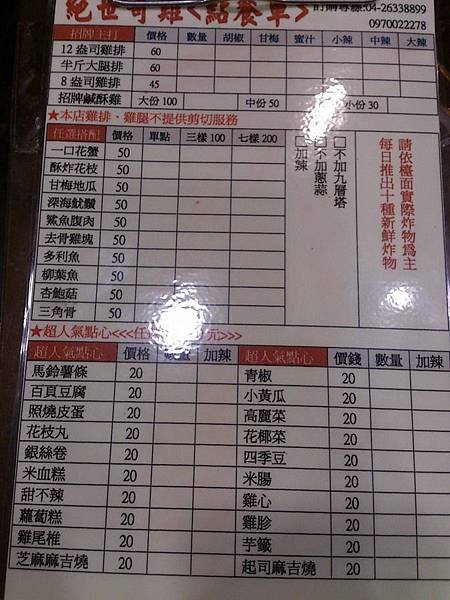 絕世奇雞<點餐單> 訂購專線:04-26338899
0970022278
招牌主打 價格 數量 胡椒 甘梅 蜜汁 小辣 中辣 大辣
12 盎司雞排 60
半斤大腿排 60
8 盎司雞排 45
招牌鹹酥雞 大份 100 中份 50 小份 30
★本店雞排、雞腿不提供剪切服務
任選搭配 價格 單點 三樣 100 七樣 200
一口花蟹 50
酥炸花枝 50
甘梅地瓜 50
深海魷鬚 50
鯊魚腹肉 50
去骨雞塊 50
多利魚 50
柳葉魚 50
杏鮑菇 50
三角骨 50
□不加九層塔
□不加蔥蒜
□加辣
請依檯面實際炸物為主
每日推出十種新鮮炸物
★超人氣點心<<<任 元>>>
超人氣點心 價格 數量 加辣 超人氣點心 價錢 數量 加辣
馬鈴薯條 20 青椒 20
百頁豆腐 20 小黃瓜 20
照燒皮蛋 20 高麗菜 20
花枝丸 20 花椰菜 20
銀絲卷 20 四季豆 20
米血糕 20 米腸 20
甜不辣 20 雞心 20
蘿蔔糕 20 雞胗 20
雞尾椎 20 芋籤 20
芝麻麻吉燒 20 起司麻吉燒 20